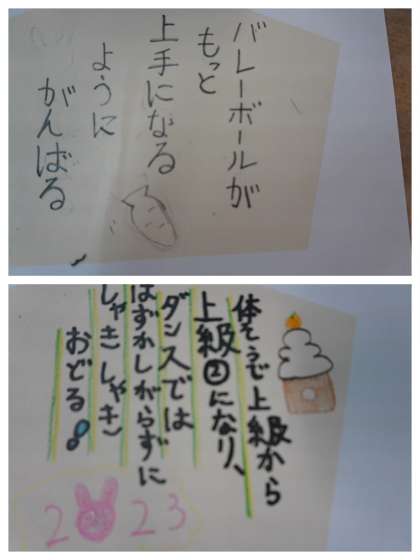 バレーボールが
もっと
上手になる
ように
がんばる
体そうで上級から
上級②になり、
ダンスでは
はずかしがらずに
しゃきしゃき
おどる
2023